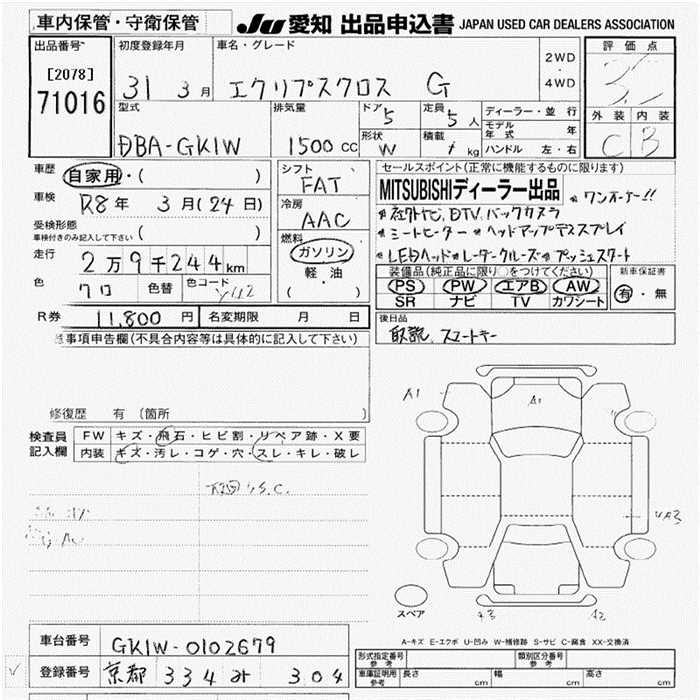 車内保管・守衛保管
JU 愛知 出品申込書 JAPAN USED CAR DEALERS ASSOCIATION
出品番号
[2078]
71016
初度登録年月
31 3月
車名・グレード
エクリプスクロス G
2WD
・
4WD
評価点
外装 内装
C B
型式
DBA-GK1W
排気量
1500cc
ドア 5
定員 5人
形状 W
積載 kg
ディーラー・並行
モデル年式 年
ハンドル 左・右
車歴 自家用・( )
車検 R8年 3月(24日)
受検形態
車検付きのみ記入して下さい ( )
走行 2万9千244km
色 クロ 色替 色コード
シフト
FAT
冷房
AAC
燃料
ガソリン
軽・油
( )
セールスポイント(正常に機能するものに限ります)
MITSUBISHIディーラー出品 *ワンオーナー!!
*社外ナビ、DTV、バックカメラ
*シートヒーター *ヘッドアップディスプレイ
*LEDヘッド*レーダークルーズ*プッシュスタート
装備品(純正品に限り○をつけてください) 新車保証書
PS PW エアB AW
SR ナビ TV カワシート
有・無
R券 11,800円 名変期限 月 日
後日品
取説、スマートキー
事項申告欄(不具合内容等は具体的に記入して下さい)
修復歴 有(箇所 )
検査員記入欄
FW キズ・飛石・ヒビ割・リペア跡・X要
内装 キズ・汚レ・コゲ・穴・スレ・キレ・破レ
A1
A1
A2
スペア
A-キズ E-エクボ U-凹み W-補修跡 S-サビ C-腐食 XX-交換済
車台番号 GK1W-0102679
登録番号 京都 334 み 304
形式指定番号 参考
類別区分番号 参考
車庫証明用 参考 長さ cm 幅 cm 高さ cm